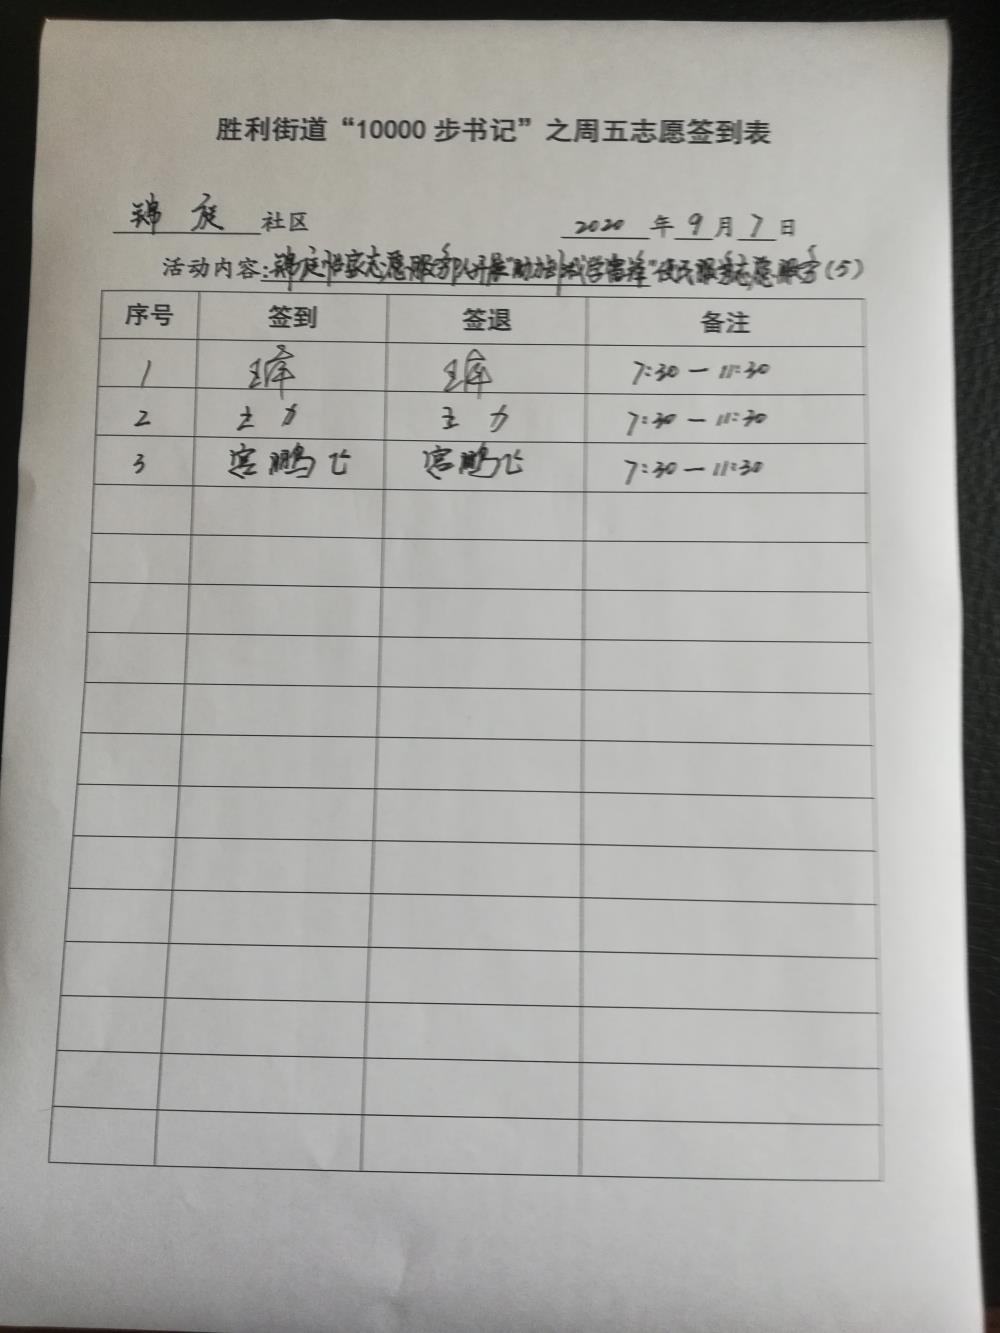 胜利街道“10000步书记”之周五志愿签到表
锦庭 社区 2020 年 9 月 7 日
活动内容:锦庭怡家志愿服务队开展“助力 ”便民服务志愿服务(5)
序号 签到 签退 备注
1 7:30—11:30
2 王力 王力 7:30—11:30
3 宫鹏飞 宫鹏飞 7:30—11:30